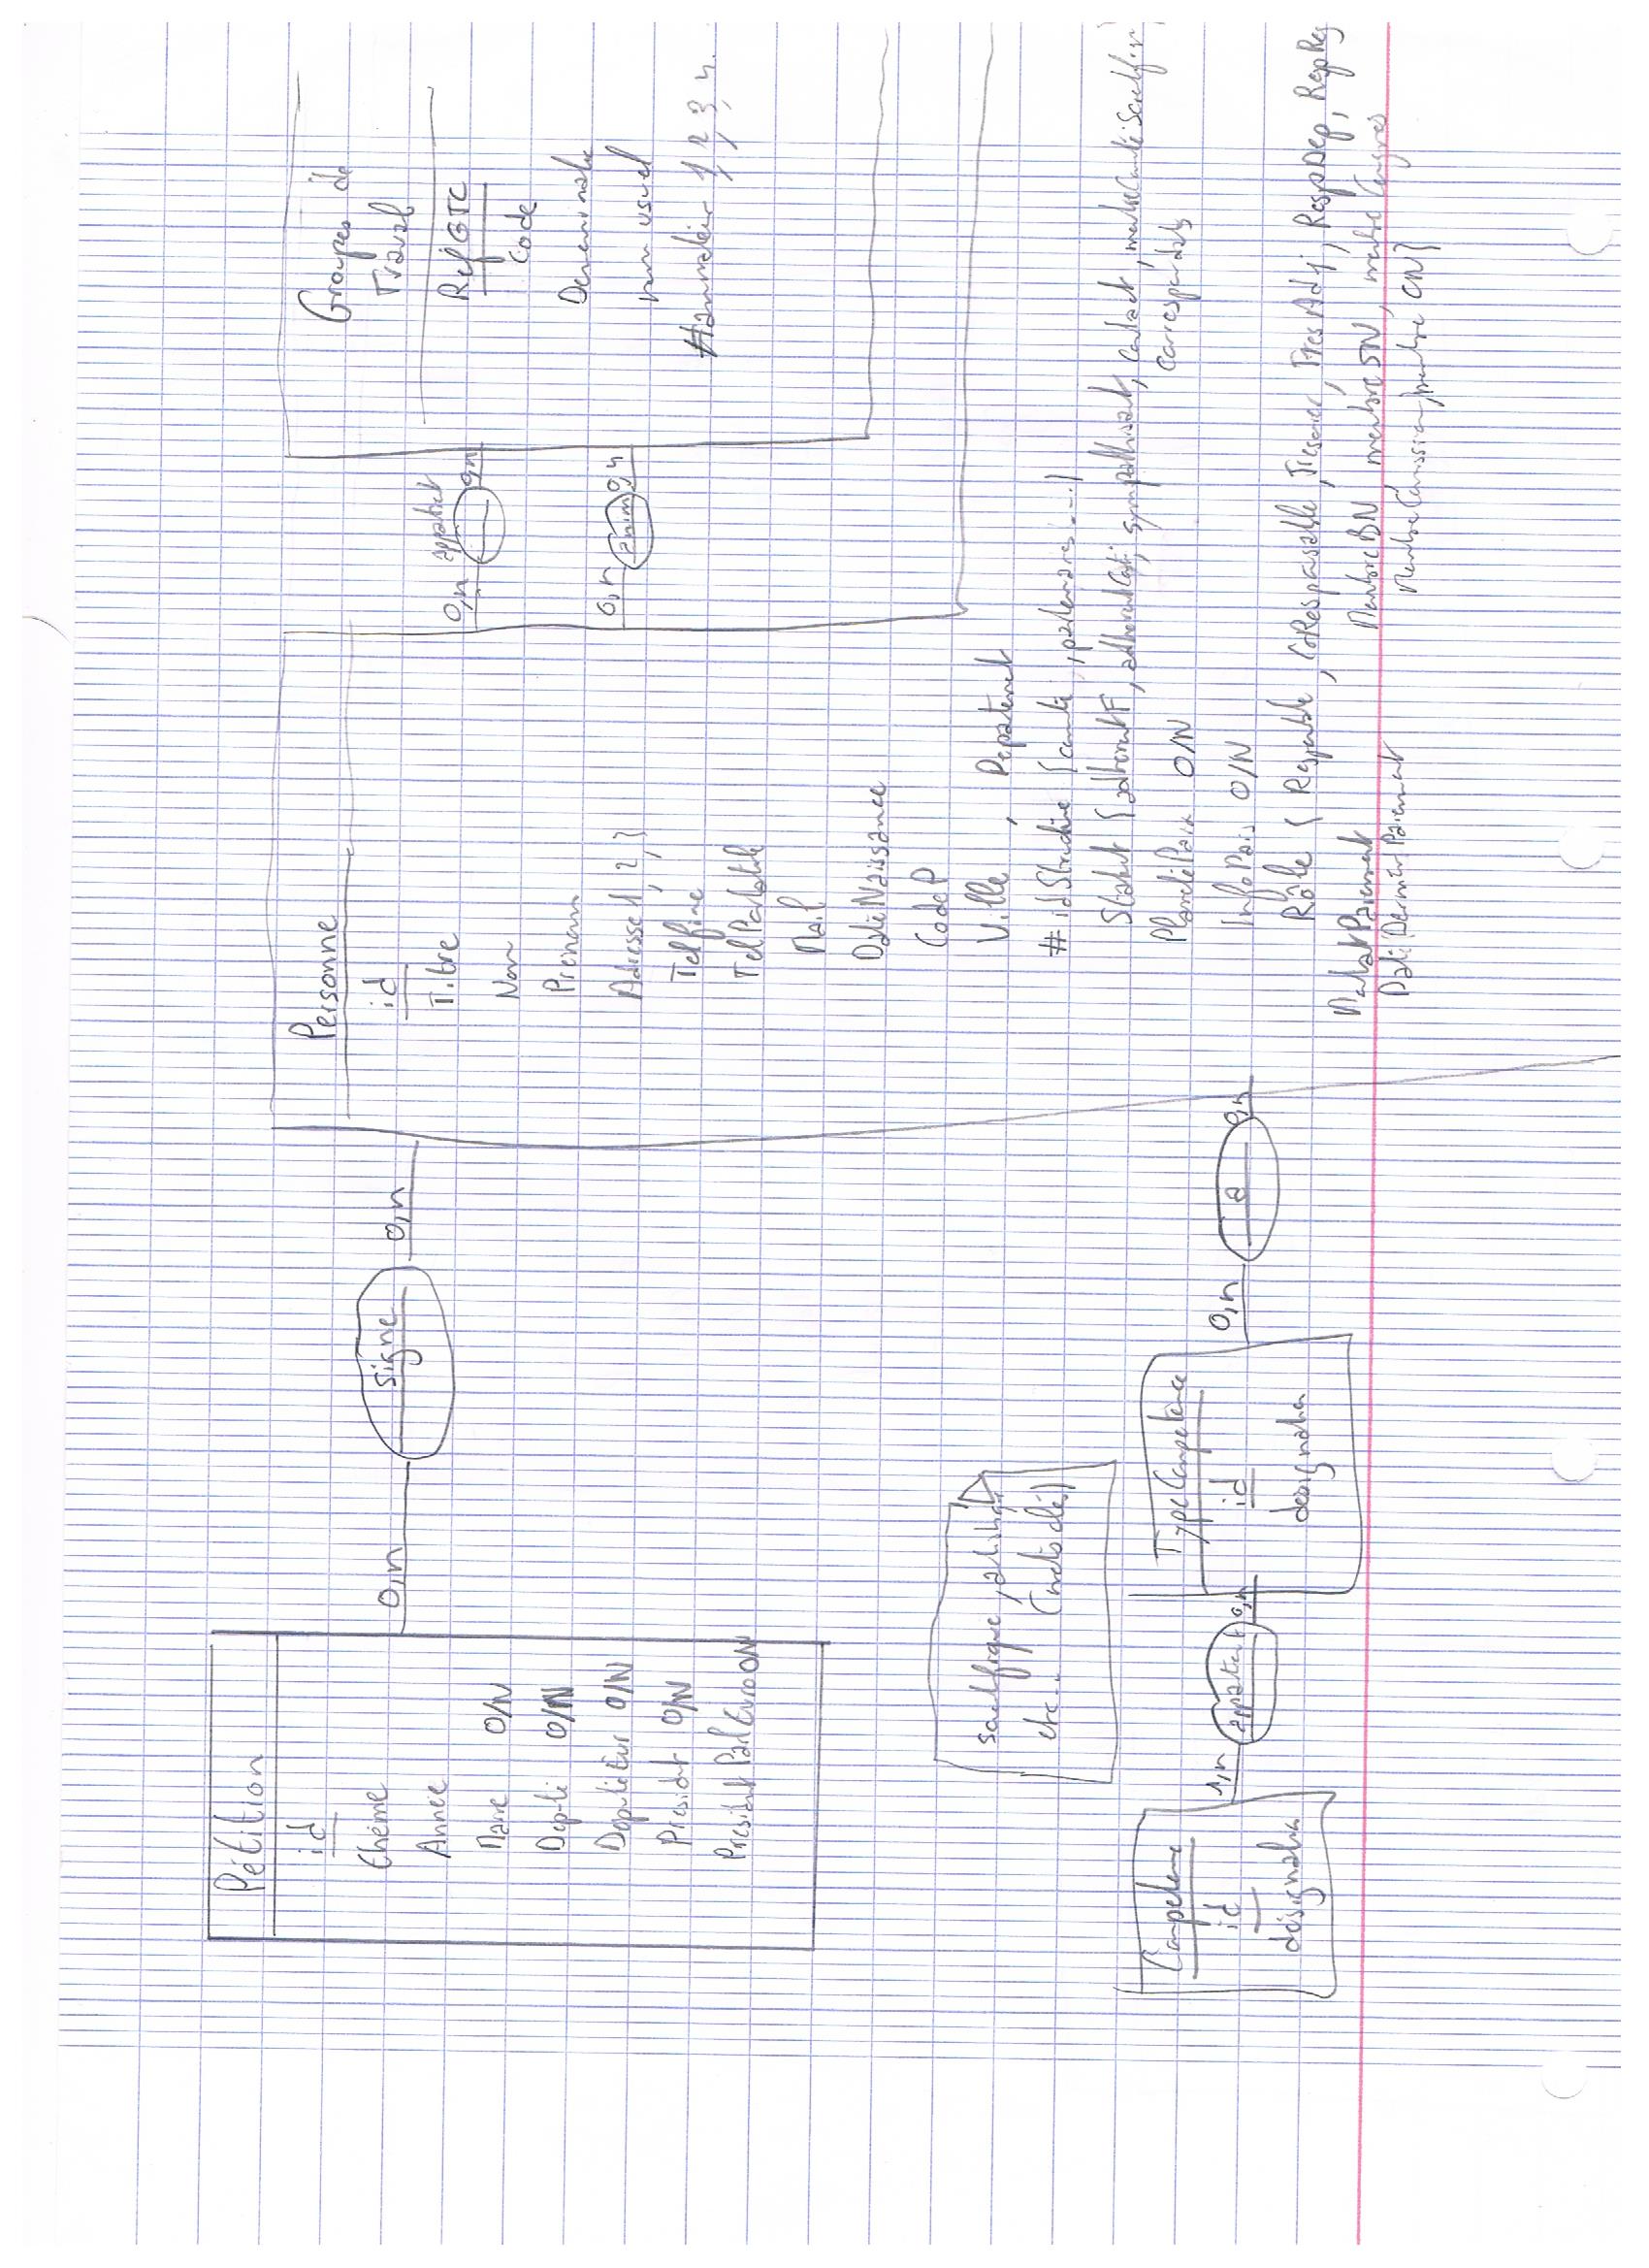 Pétition
id
thème
Année
Maire O/N
Député O/N
DéputéEur O/N
Président O/N
Président Parl Euro O/N
0,n signe 0,n
Personne
id
Titre
Nom
Prénom
Adresse 1, 2, 3
Tel fixe
Tel Portable
Mail
Date Naissance
Code P
Ville , Département
# idStructure {comité , partenaires ....}
Statut {adhérentF, adhérent , sympathisant, contact,
correspondants
PlanètePaix O/N
InfoPaix O/N
Rôle { Responsable, CoResponsable, Trésorier, TrésAdj, RespDep, RespReg
MembreBN, membreSN, membre Congrès
Membre Commission, membre CN}
Paiement
Date Dernier Paiement
0,n appartient 0,n
0,n anim 0,n
Groupes de
Travail
Ref GTC
Code
nom usuel
1, 2, 3, 4.
scientifique, artistique
etc... (mots clé)
Compétence
id
désignation
1,n appartient 0,n
TypeCompétence
id
désignation
0,n a 0,n